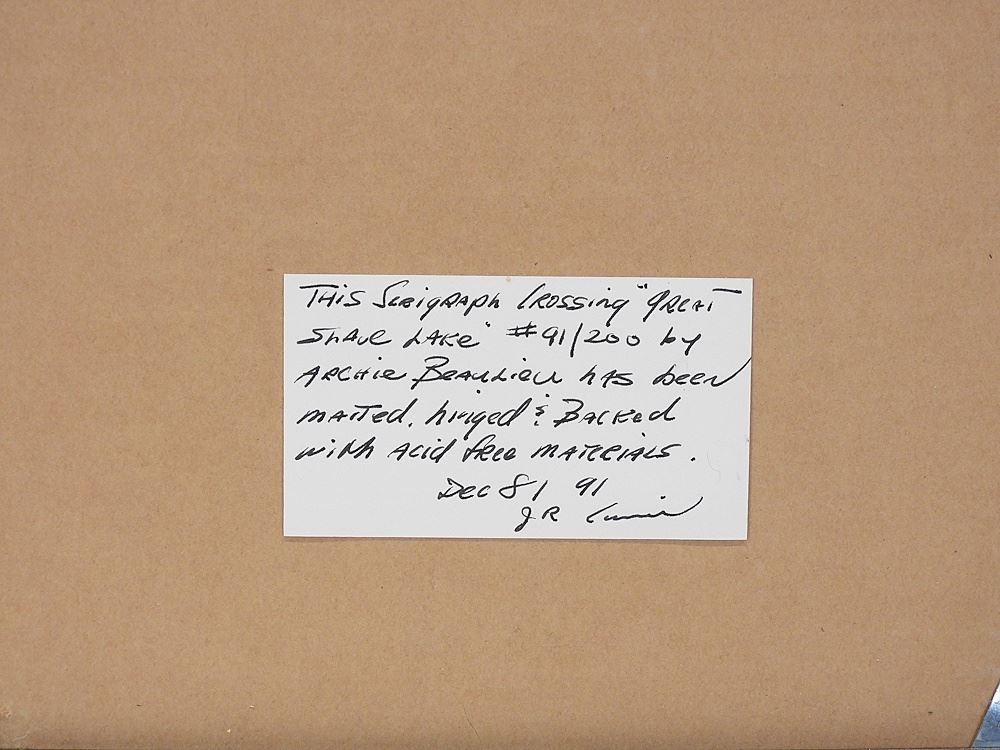 THIS Serigraph Crossing "Great
Slave Lake" #91/200 by
Archie Beaulieu has been
matted, hinged & Backed
with Acid free materials.
Dec 8/ 91
JR